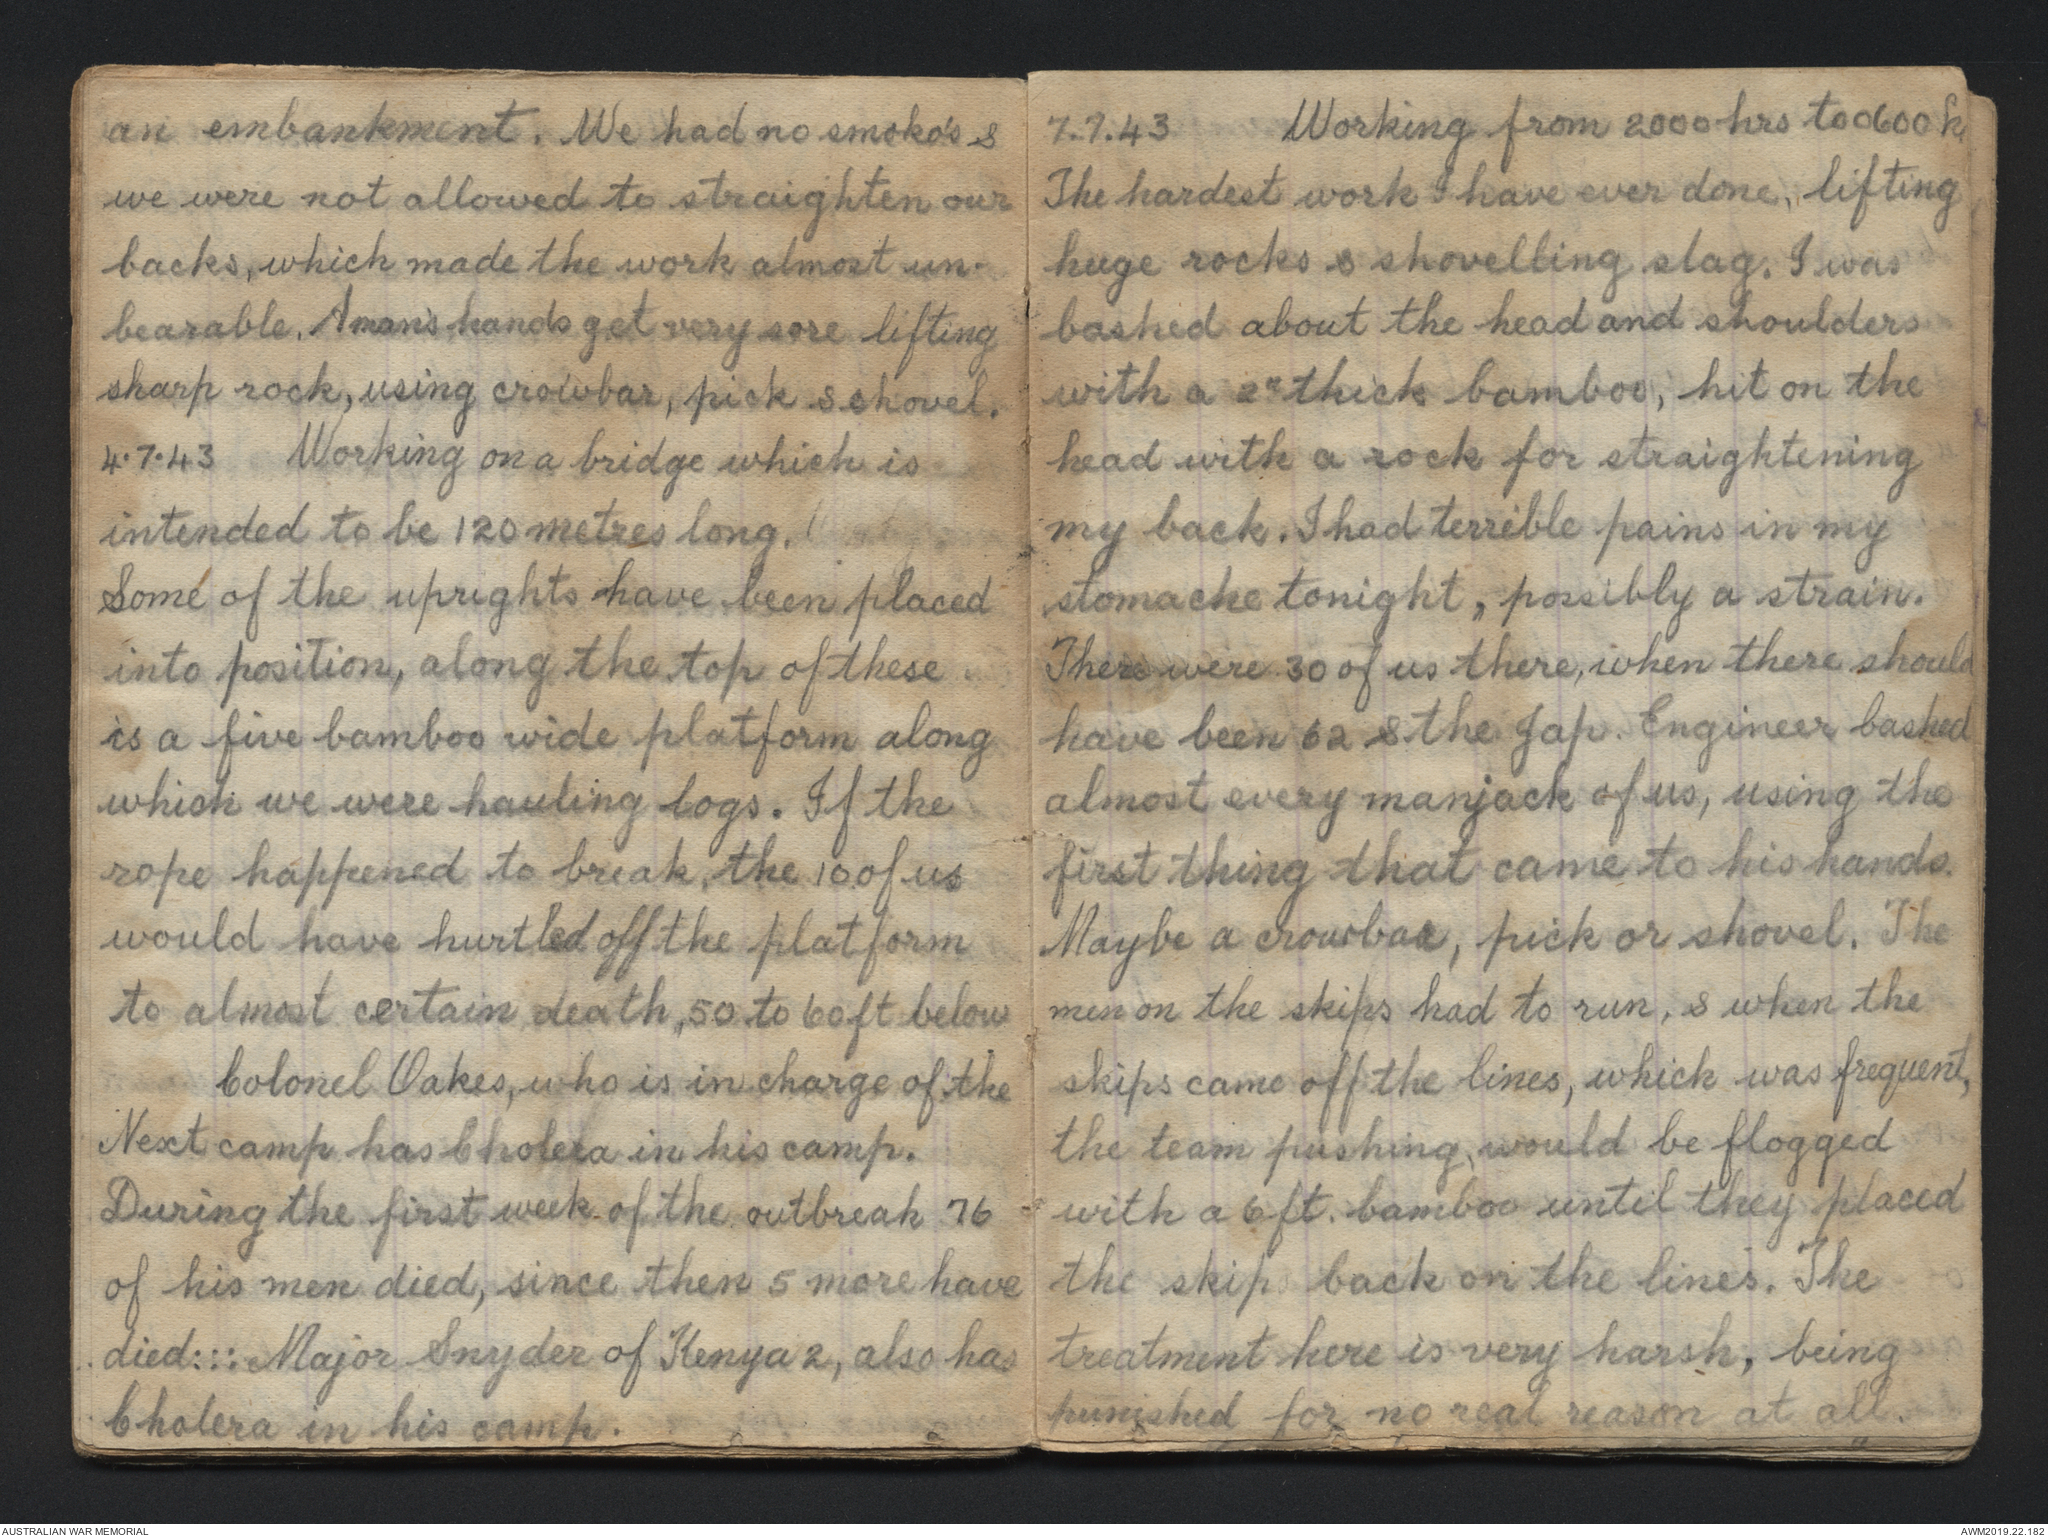 an embankment. We had no smoko's &
we were not allowed to straighten our
backs, which made the work almost un-
bearable. A man's hands get very sore lifting
sharp rock, using crowbar, pick & shovel.
4.7.43 Working on a bridge which is
intended to be 120 metres long.
Some of the uprights have been placed
into position, along the top of these
is a five bamboo wide platform along
which we were hauling logs. If the
rope happened to break, the 10 of us
would have hurtled off the platform
to almost certain death, 50 to 60 ft below
Colonel Oakes, who is in charge of the
Next camp has Cholera in his camp.
During the first week of the outbreak 76
of his men died, since then 5 more have
died::: Major Snyder of Kenya 2, also has
Cholera in his camp.
7.7.43 Working from 2000 hrs to 0600 h
The hardest work I have ever done, lifting
huge rocks & shovelling slag. I was
bashed about the head and shoulders
with a 2" thick bamboo, hit on the
head with a rock for straightening
my back. I had terrible pains in my
stomache tonight, possibly a strain.
There were 30 of us there, when there should
have been 62 & the Jap. Engineer bashed
almost every manjack of us, using the
first thing that came to his hands.
Maybe a crowbar, pick or shovel. The
men on the skips had to run, & when the
skips came off the lines, which was frequent,
the team pushing, would be flogged
with a 6 ft. bamboo until they placed
the skip back on the lines. The
treatment here is very harsh, being
punished for no real reason at all.
AUSTRALIAN WAR MEMORIAL
AWM2019.22.182